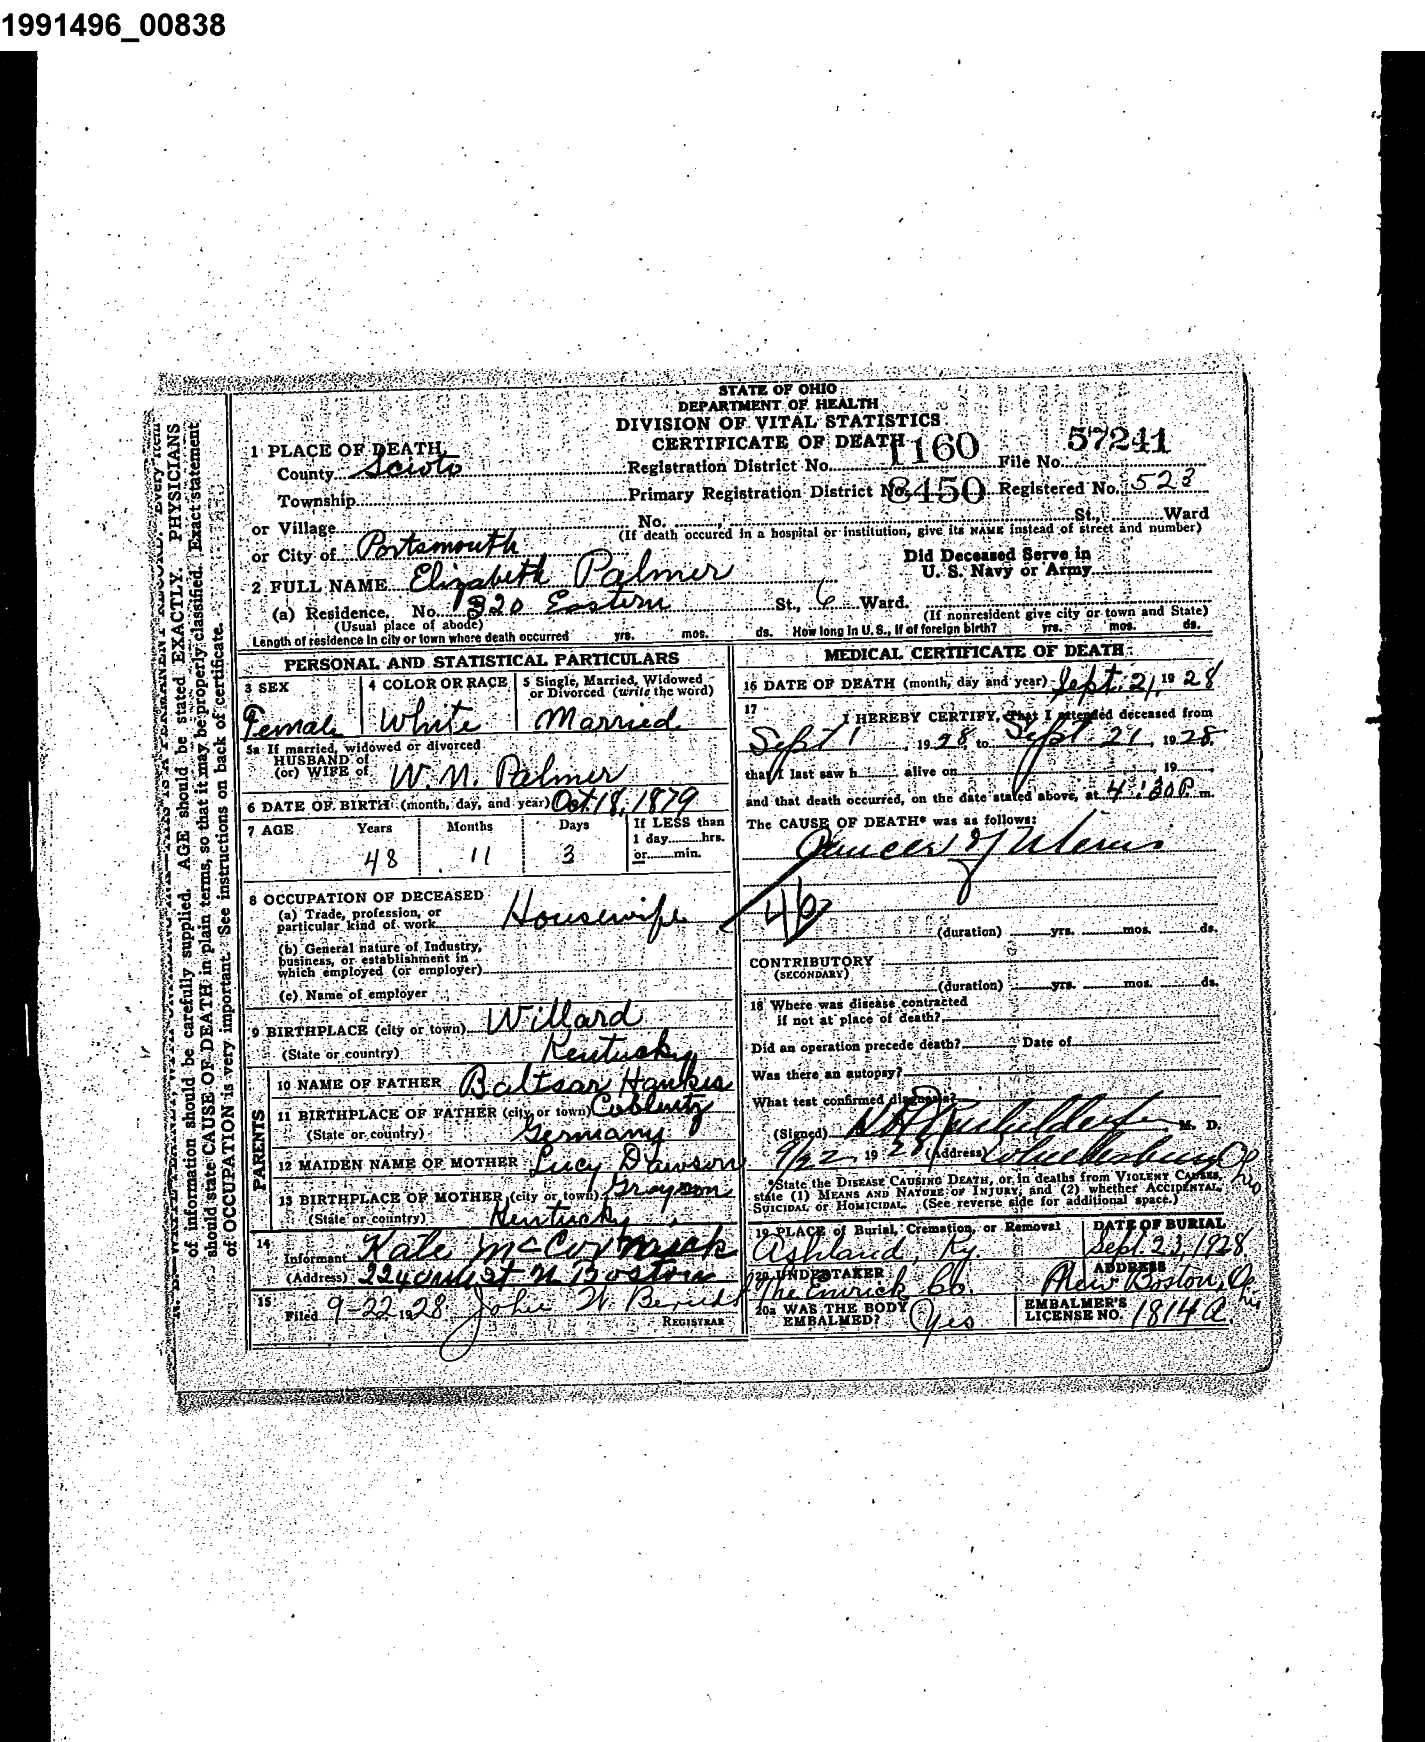 1991496_00838
STATE OF OHIO
DEPARTMENT OF HEALTH
DIVISION OF VITAL STATISTICS
CERTIFICATE OF DEATH
1 PLACE OF DEATH
County Scioto Registration District No. 1160 File No. 57241
Township Primary Registration District No. 8450 Registered No. 523
or Village No. St., Ward
(If death occured in a hospital or institution, give its NAME instead of street and number)
or City of Portsmouth
Did Deceased Serve in
U. S. Navy or Army
2 FULL NAME Elizabeth Palmer
(a) Residence. No. 320 Eastern St., 6 Ward.
(Usual place of abode) (If nonresident give city or town and State)
Length of residence in city or town where death occurred yrs. mos. ds. How long in U. S., if of foreign birth? yrs. mos. ds.
PERSONAL AND STATISTICAL PARTICULARS
3 SEX 4 COLOR OR RACE 5 Single, Married, Widowed
or Divorced (write the word)
Female White Married
5a If married, widowed or divorced
HUSBAND of
(or) WIFE of W. N. Palmer
6 DATE OF BIRTH (month, day, and year) Oct. 18, 1879
7 AGE Years Months Days If LESS than
1 day hrs.
or min.
48 11 3
8 OCCUPATION OF DECEASED
(a) Trade, profession, or
particular kind of work Housewife
(b) General nature of Industry,
business, or establishment in
which employed (or employer)
(c) Name of employer
9 BIRTHPLACE (city or town) Willard
(State or country) Kentucky
PARENTS
10 NAME OF FATHER Baltsar Hankes
11 BIRTHPLACE OF FATHER (city or town) Coblentz
(State or country) Germany
12 MAIDEN NAME OF MOTHER Lucy Dawson
13 BIRTHPLACE OF MOTHER (city or town) Grayson
(State or country) Kentucky
14
Informant Kate McCormick
(Address) N Boston
15
Filed 9-22-1928 John W.
REGISTRAR
MEDICAL CERTIFICATE OF DEATH
16 DATE OF DEATH (month, day and year) Sept. 21, 1928
17
I HEREBY CERTIFY, That I attended deceased from
Sept 1, 1928, to Sept 21, 1928,
that I last saw h alive on , 19
and that death occurred, on the date stated above, at 4:30 P. m.
The CAUSE OF DEATH* was as follows:
Cancer of Uterus
(duration) yrs. mos. ds.
CONTRIBUTORY
(SECONDARY)
(duration) yrs. mos. ds.
18 Where was disease contracted
if not at place of death?
Did an operation precede death? Date of
Was there an autopsy?
What test confirmed diagnosis?
(Signed) M. D.
9/22 1928 (Address) Wheelersburg Ohio
*State the DISEASE CAUSING DEATH, or, in deaths from VIOLENT CAUSES,
state (1) MEANS AND NATURE OF INJURY, and (2) whether ACCIDENTAL,
SUICIDAL or HOMICIDAL. (See reverse side for additional space.)
19 PLACE of Burial, Cremation, or Removal DATE OF BURIAL
Ashland, Ky. Sept 23, 1928
20 UNDERTAKER ADDRESS
The Emrick Co. New Boston, Ohio
20a WAS THE BODY
EMBALMED? Yes
EMBALMER'S
LICENSE NO. 1814 A.
of information should be carefully supplied. AGE should be stated EXACTLY. PHYSICIANS
should state CAUSE OF DEATH in plain terms, so that it may be properly classified. Exact statement
of OCCUPATION is very important. See instructions on back of certificate.